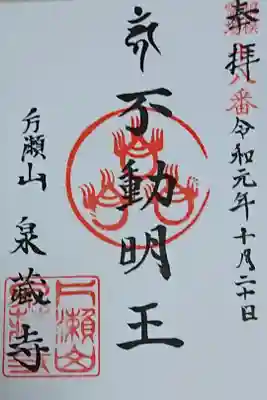 奉拝
八番
令和元年十月二十日
不動明王
片瀬山
泉蔵寺
片瀬山